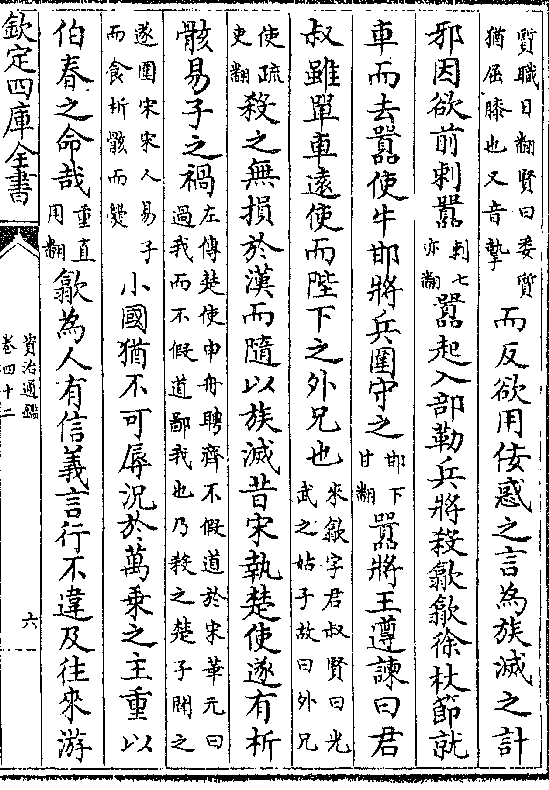 質職日翻賢曰委質
猶屈膝也又音摯
而反欲用佞惑之言為族滅之計
邪因欲前刺囂
刺七
亦翻
囂起入部勒兵將殺歙歙徐杖節就
車而去囂使牛邯將兵圍守之
邯下
甘翻
囂將王遵諫曰君
叔雖單車遠使而陛下之外兄也
來歙字君叔賢曰光
武之姑子故曰外兄
使疏
吏翻
殺之無損於漢而隨以族滅昔宋執楚使遂有析
骸易子之禍
左傳楚使申舟聘齊不假道於宋華元曰
過我而不假道鄙我也乃殺之楚子聞之
遂圍宋宋人易子
而食析骸而爨
小國猶不可辱況於萬乗之主重以
伯春之命哉
重直
用翻
歙為人有信義言行不違及往來游
欽定四庫全書
資治通鑑
卷四十二
六